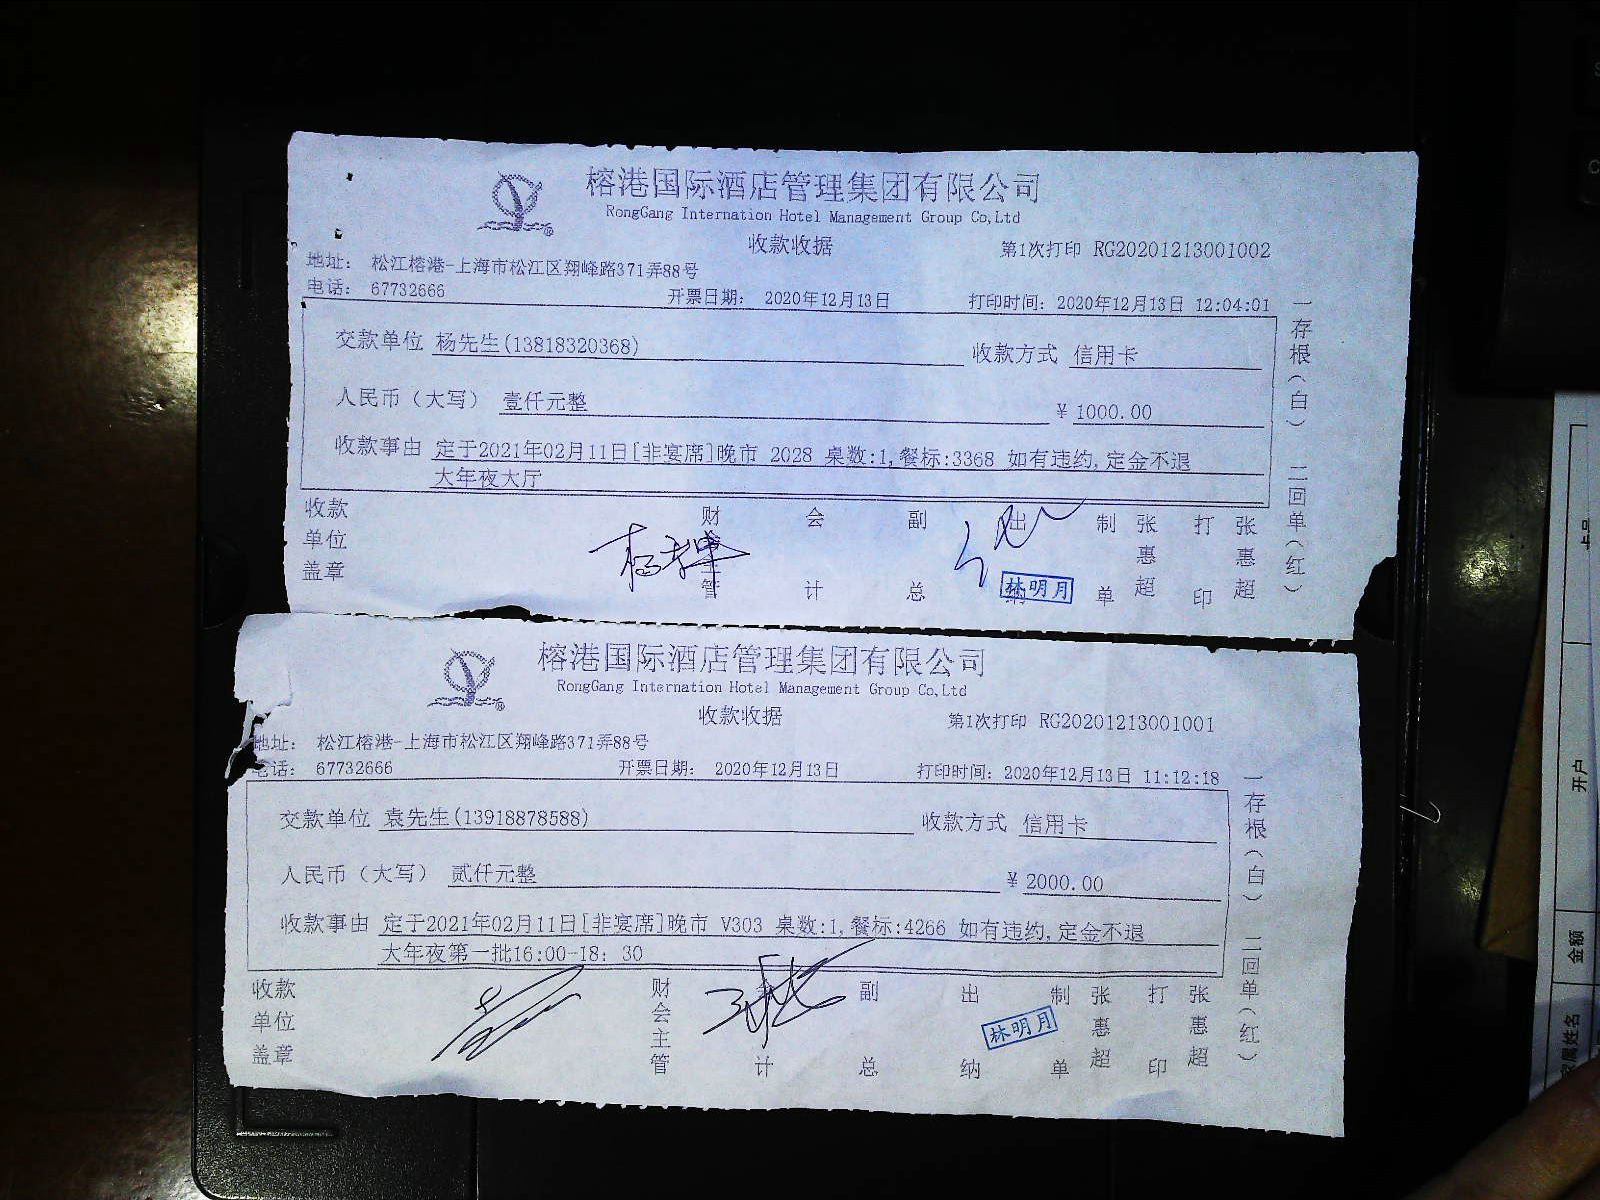 榕港国际酒店管理集团有限公司
RongGang Internation Hotel Management Group Co,Ltd
收款收据
第1次打印 RG20201213001002
地址: 松江榕港-上海市松江区翔峰路371弄88号
电话: 67732666
开票日期: 2020年12月13日
打印时间: 2020年12月13日 12:04:01
交款单位 杨先生(13818320368)
收款方式 信用卡
人民币（大写） 壹仟元整
¥ 1000.00
收款事由 定于2021年02月11日[非宴席]晚市 2028 桌数:1,餐标:3368 如有违约,定金不退
大年夜大厅
一存根(白) 二回单(红)
收款单位盖章
财会主管
会计
副总
出纳
林明月
制单
张惠超
打印
张惠超
榕港国际酒店管理集团有限公司
RongGang Internation Hotel Management Group Co,Ltd
收款收据
第1次打印 RG20201213001001
地址: 松江榕港-上海市松江区翔峰路371弄88号
电话: 67732666
开票日期: 2020年12月13日
打印时间: 2020年12月13日 11:12:18
交款单位 袁先生(13918878588)
收款方式 信用卡
人民币（大写） 贰仟元整
¥ 2000.00
收款事由 定于2021年02月11日[非宴席]晚市 V303 桌数:1,餐标:4266 如有违约,定金不退
大年夜第一批16:00-18: 30
一存根(白) 二回单(红)
收款单位盖章
财会主管
会计
副总
出纳
林明月
制单
张惠超
打印
张惠超
开户
金额